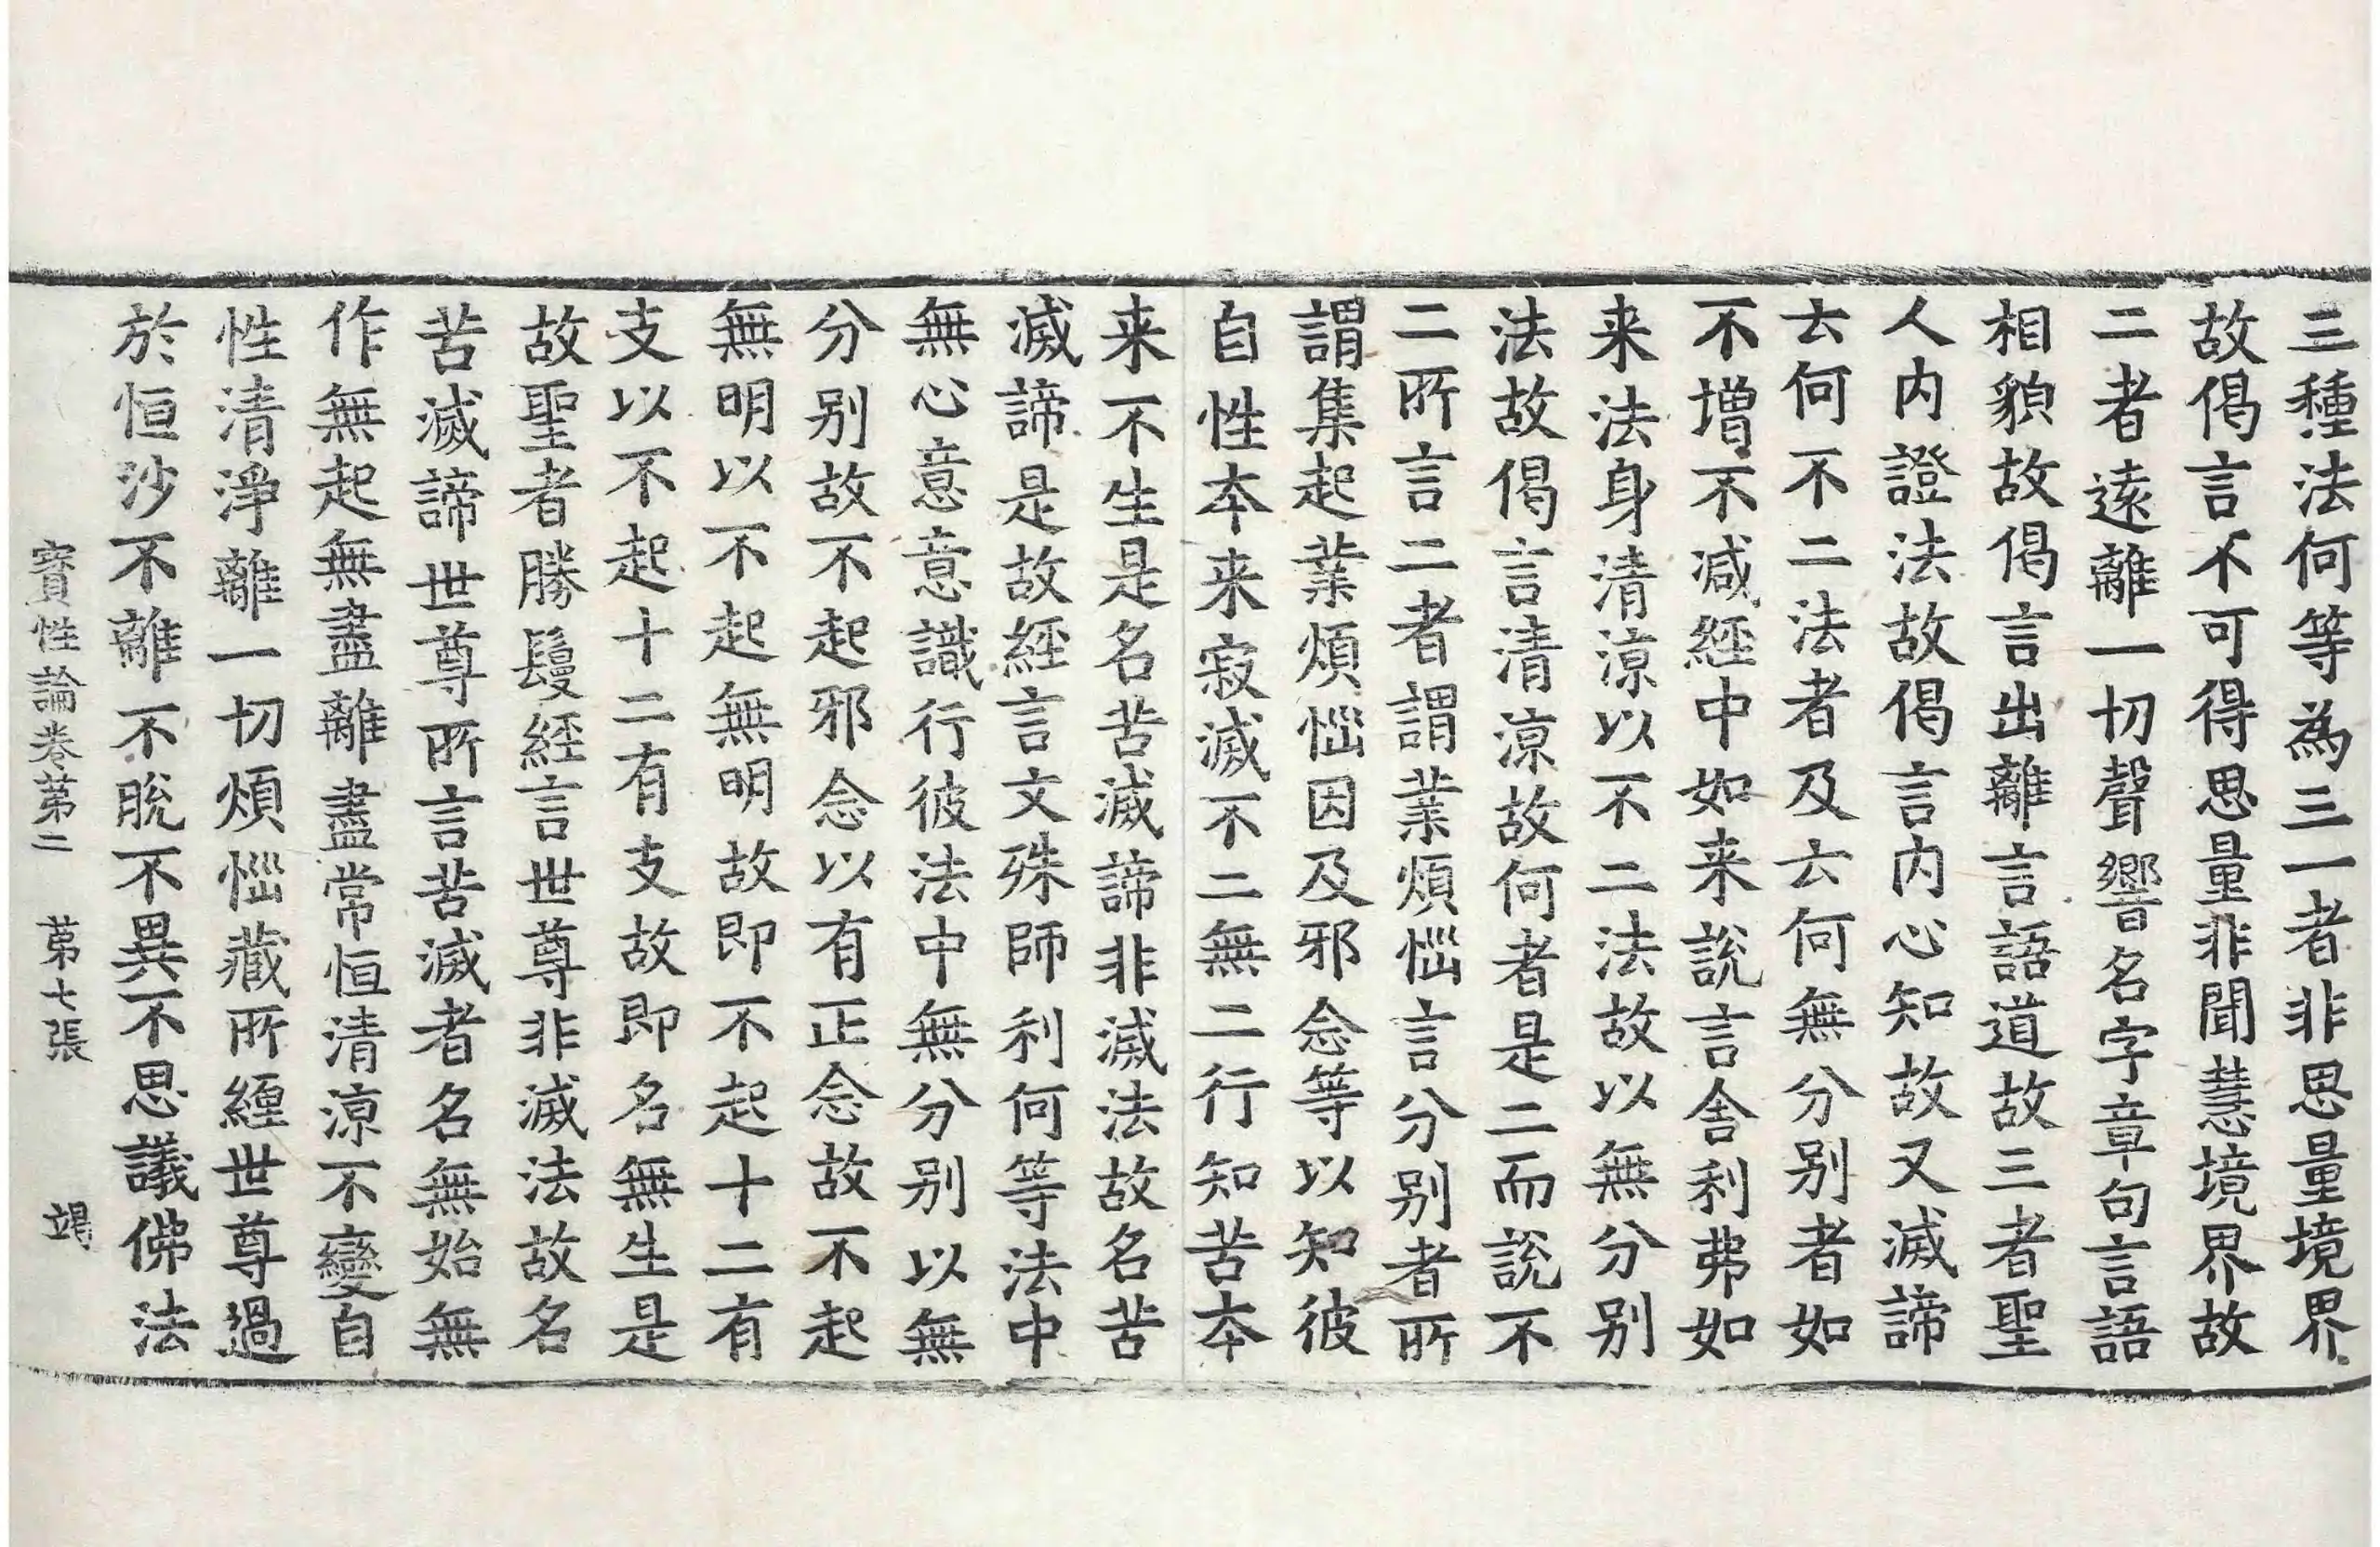 三種法何等為三一者非思量境界
故偈言不可得思量非聞慧境界故
二者遠離一切聲響名字章句言語
相貌故偈言出離言語道故三者聖
人內證法故偈言內心知故又滅諦
云何不二法者及云何無分別者如
不增不減經中如来說言舍利弗如
来法身清涼以不二法故以無分別
法故偈言清涼故何者是二而說不
二所言二者謂業煩惱言分別者所
謂集起業煩惱因及邪念等以知彼
自性本来寂滅不二無二行知苦本
来不生是名苦滅諦非滅法故名苦
滅諦是故經言文殊師利何等法中
無心意意識行彼法中無分別以無
分別故不起邪念以有正念故不起
無明以不起無明故即不起十二有
支以不起十二有支故即名無生是
故聖者勝鬘經言世尊非滅法故名
苦滅諦世尊所言苦滅者名無始無
作無起無盡離盡常恒清涼不變自
性清淨離一切煩惱藏所纏世尊過
於恒沙不離不脫不異不思議佛法
寶性論卷第二 第七張 竭